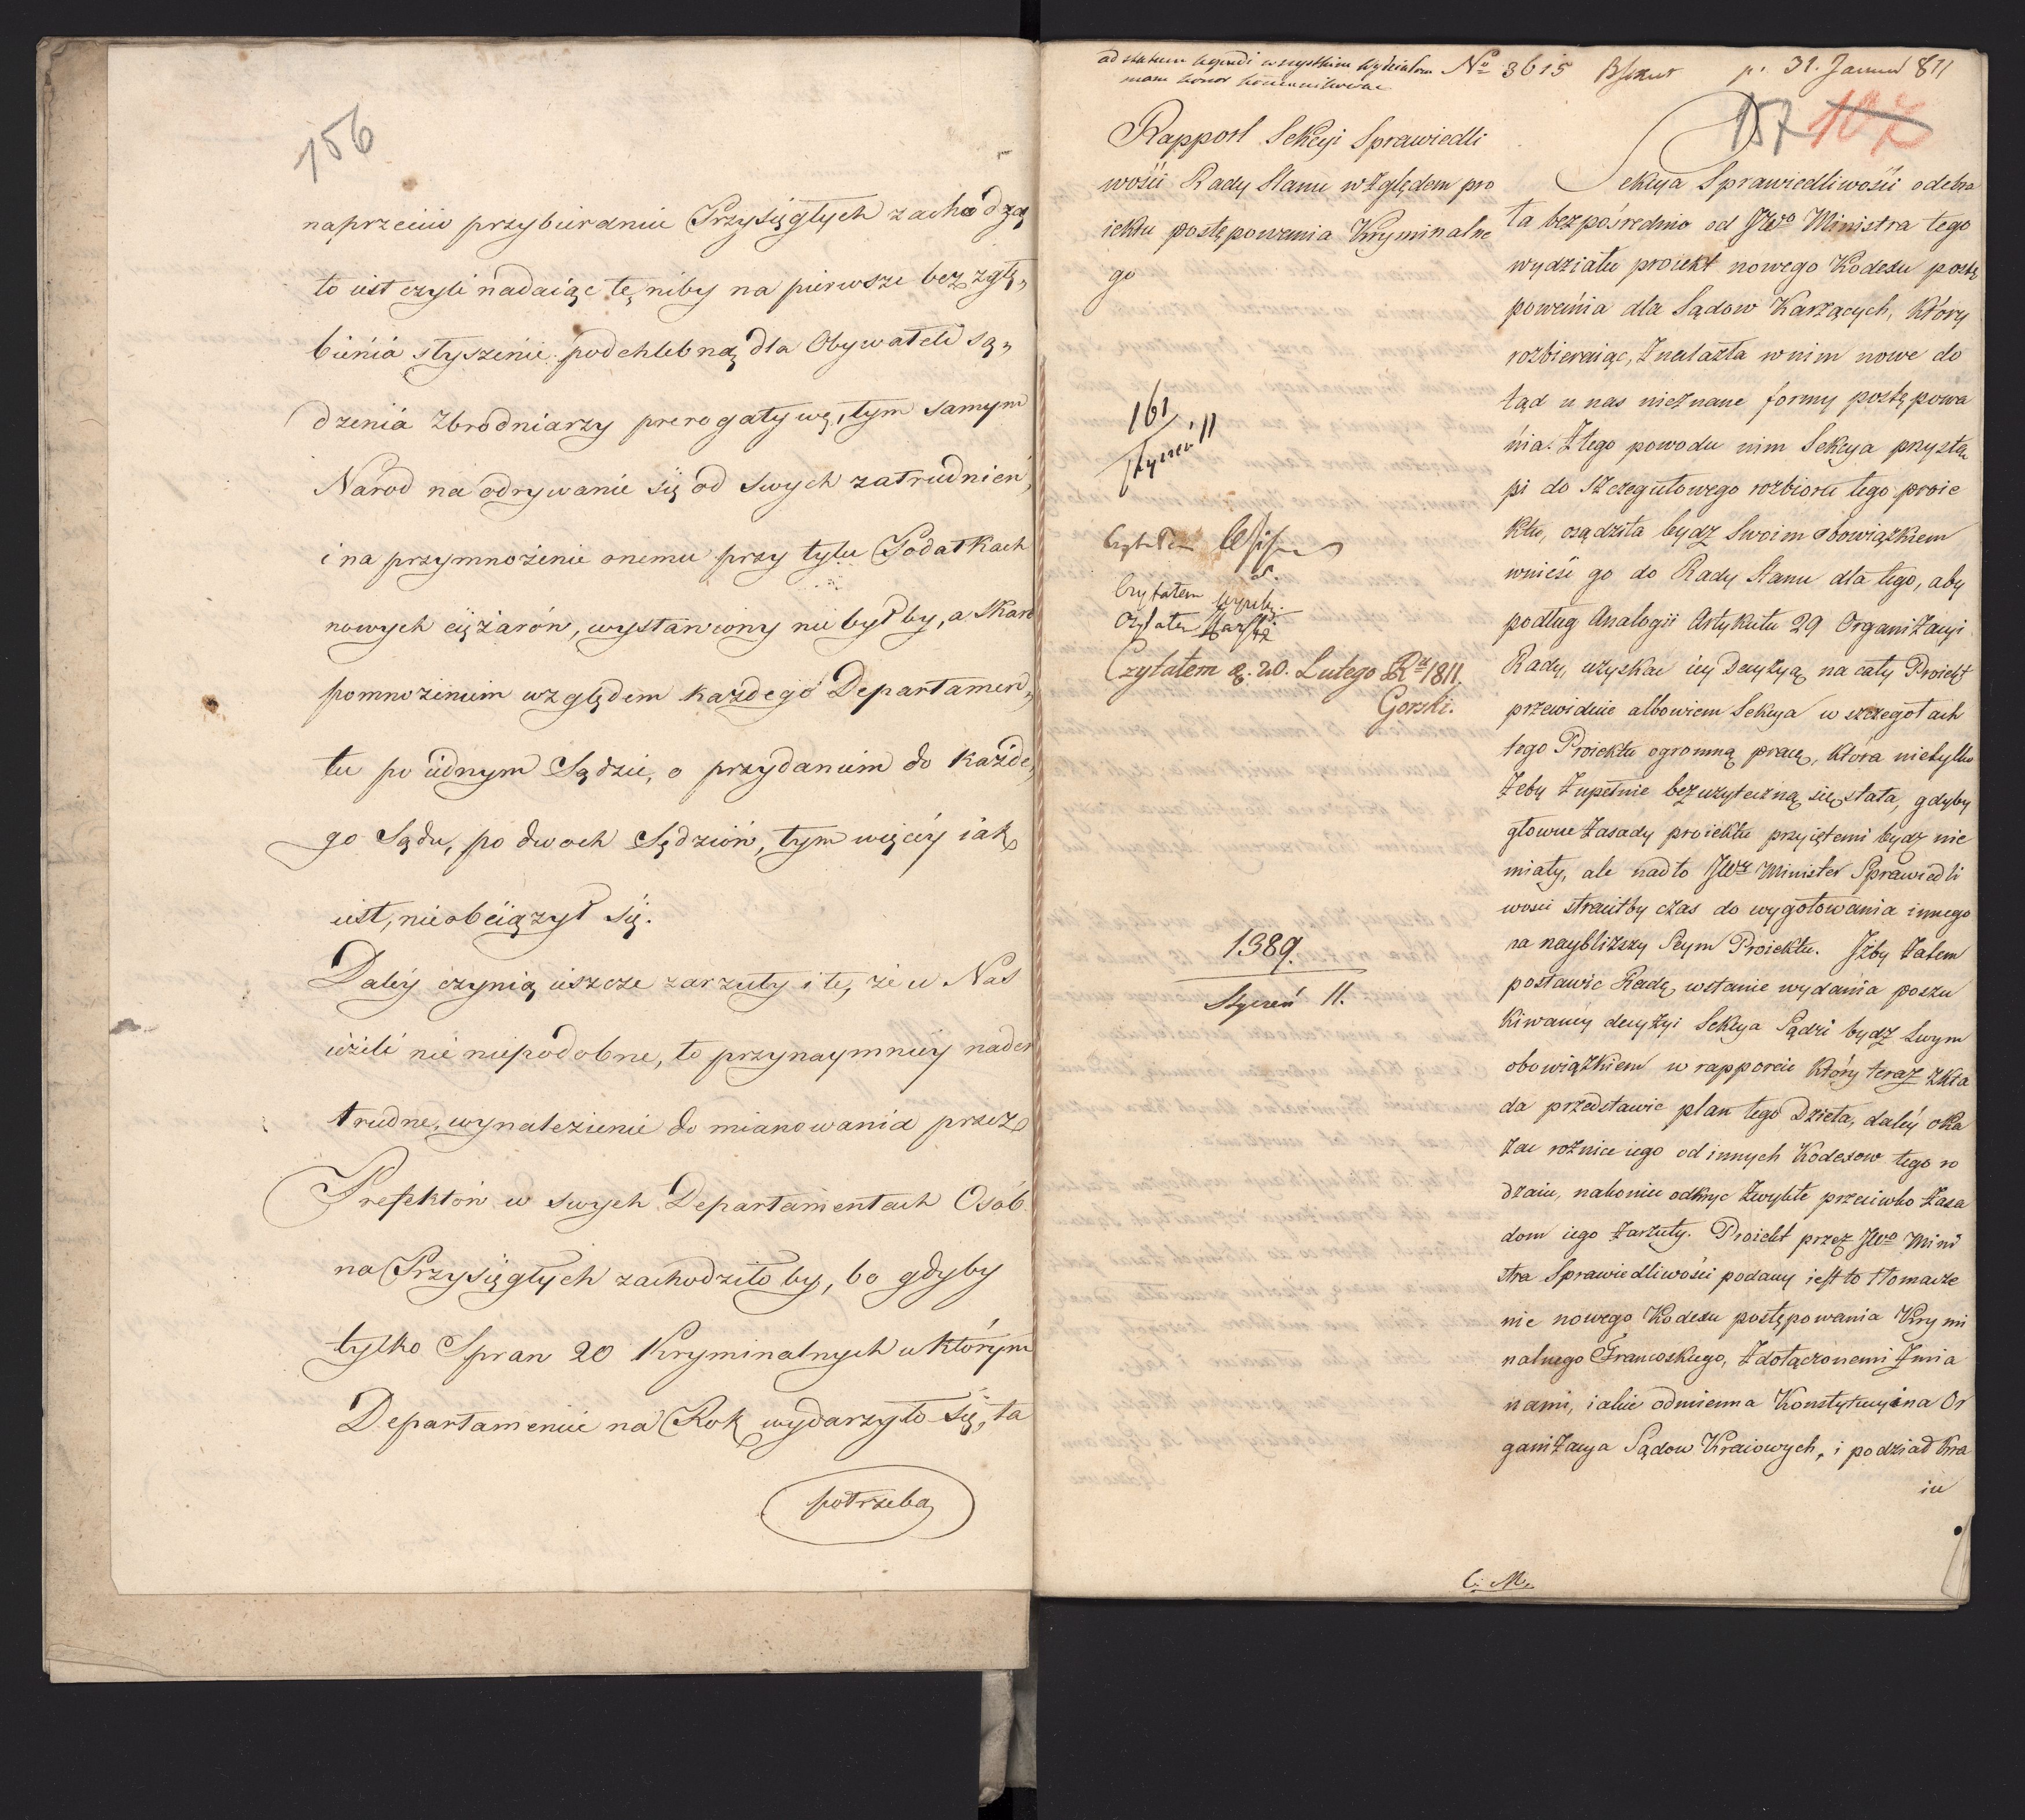 156
naprzeciw przybieraniu Przysięgłych zachodzą
to iest czyli nadaiąc tę niby na pierwsze bez zgłę„
bienia słyszenie podchlebną dla Obywateli są„
dzenia Zbrodniarzy prerogatywę, tym samym
Narod na odrywanie się od swych zatrudnień,
i na przymnożenie onemu przy tylu Podatkach
nowych ciężarów, wystawiony nie byłby, a Skarb
pomnożeniem względem każdego Departamen„
tu po iednym Sądzie, o przydaniem do każde„
go Sądu, po dwoch Sędziów, tym więcey iak
iest, nie obciążył się.
Daley czynią ieszcze zarzuty i te, że u Nas
ieżeli nie niepodobne, to przynaymniey nader
trudne, wynalezienie do mianowania przez
Prefektów w swych Departamentach Osób
na Przysięgłych zachodziło by, bo gdyby
tylko Spraw 20 Kryminalnych w którym
Departamencie na Rok wydarzyło się, ta
potrzeba
ad statum legendi wszystkim Wydziałom
mam honor kommunikować
No 3615 p. 31. Januar 811
157 107
Rapport Sekcyi Sprawiedli
wości Rady Stanu względem pro
iektu postępowania Kryminalne
go
161
Styczeń 11
Czytałem
Czytałem
Czytałem
Czytałem d. 20. Lutego Rku 1811.
Gorski.
1389.
Styczeń 11.
Sekcya Sprawiedliwości odebra
ła bezpośrednio od JWo Ministra tego
wydziału proiekt nowego Kodexu postę
powania dla Sądow Karzących, który
rozbieraiąc, Znalazła w nim nowe do
tąd u nas nieznane formy postępowa
nia. Z tego powodu nim Sekcya przystą
pi do Szczegułowego rozbioru tego proie
ktu, osądziła bydz Swoim obowiązkiem
wnieść go do Rady Stanu dla tego, aby
podług Analogii Artykułu 29 Organizacyi
Rady, uzyskać iey Decyzyą na cały Proiekt
przewiduie albowiem Sekcya w szczegołach
tego Proiektu ogromną pracę, ktora nietylko
Żeby Zupełnie bezużyteczną się stała, gdyby
głowne Zasady proiektu przyiętemi bydz nie
miały, ale nadto JWy Minister Sprawiedli
wości straciłby czas do wygotowania innego
na naybliższy Seym Proiektu. Iżby Zatem
postawić Radę w stanie wydania poszu
kiwaney decyzyi Sekcya Sądzi bydz Swym
obowiązkiem w rapporcie Który teraz Zkła
da przedstawić plan tego Dzieła, daley oka
zać rożnice iego od innych Kodexow tego ro
dzaiu, nakoniec odkryć Zwykłe przeciwko Zasa
dom iego Zarzuty. Proiekt przez JWo Mini
stra Sprawiedliwości podany iest to tłomacze
nie nowego Kodexu postępowania Krymi
nalnego Francuskiego, Z dołączonemi Zmia
nami, iakie odmienna Konstytucyina Or
ganizacya Sądow Kraiowych, i podział Kra
iu
C. M.